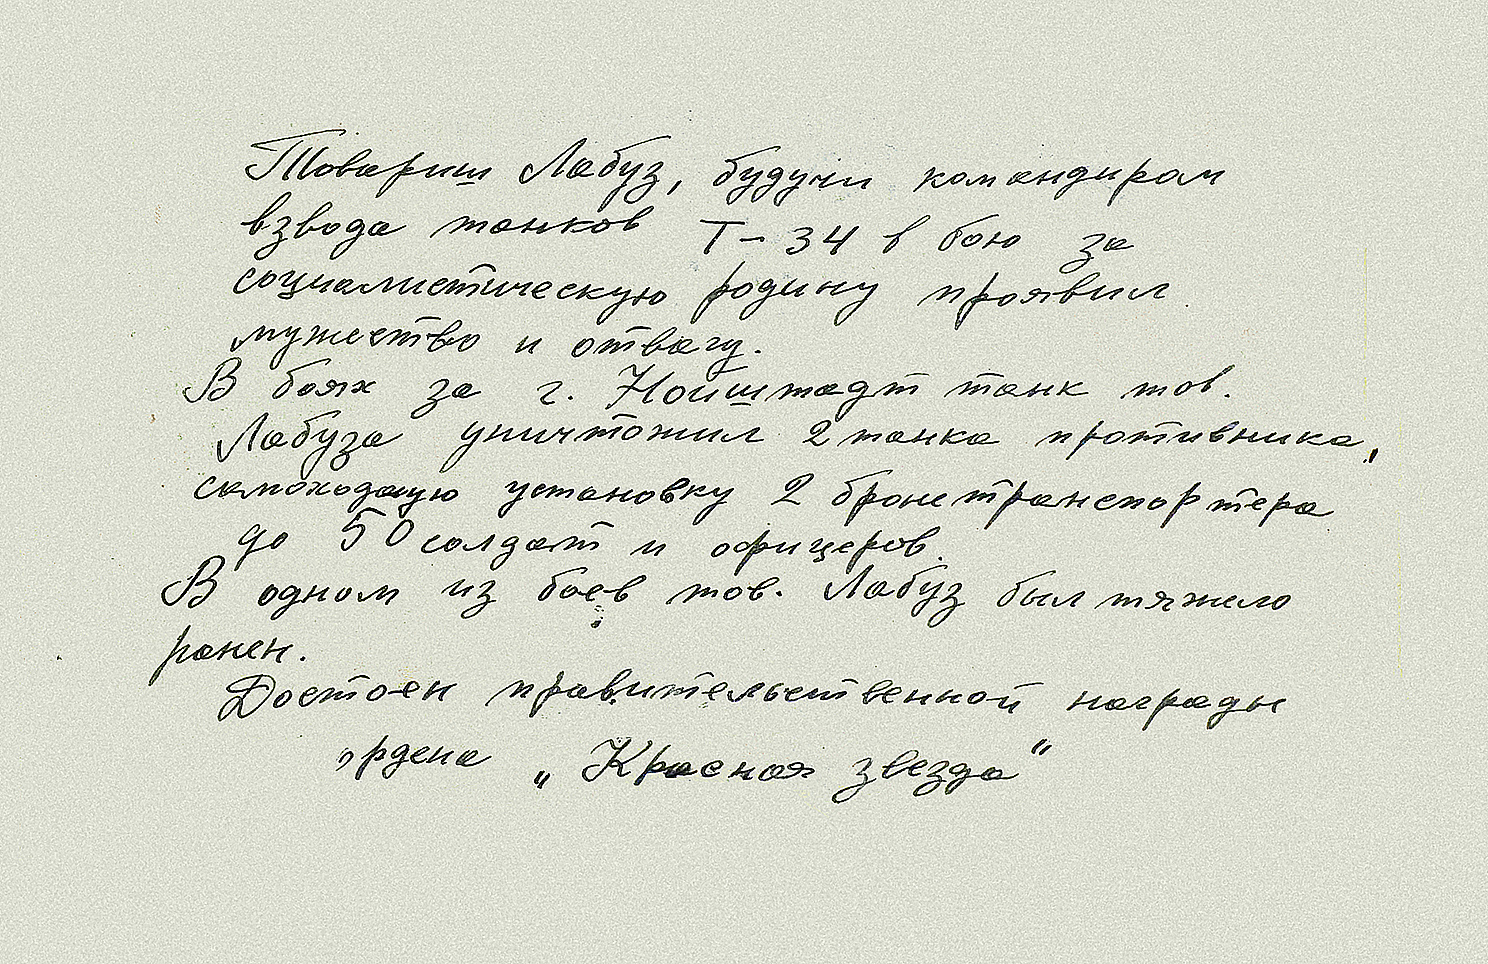 Товариш Лабуз, будучи командиром
взвода танков Т-34 в бою за
социалистическую родину проявил
мужество и отвагу.
В боях за г. Нойштадт танк тов.
Лабуза уничтожил 2 танка противника,
самоходную установку 2 бронетранспортера
до 50 солдат и офицеров.
В одном из боев тов. Лабуз был тяжело
ранен.
Достоен правительственной награды
ордена „Красная звезда"